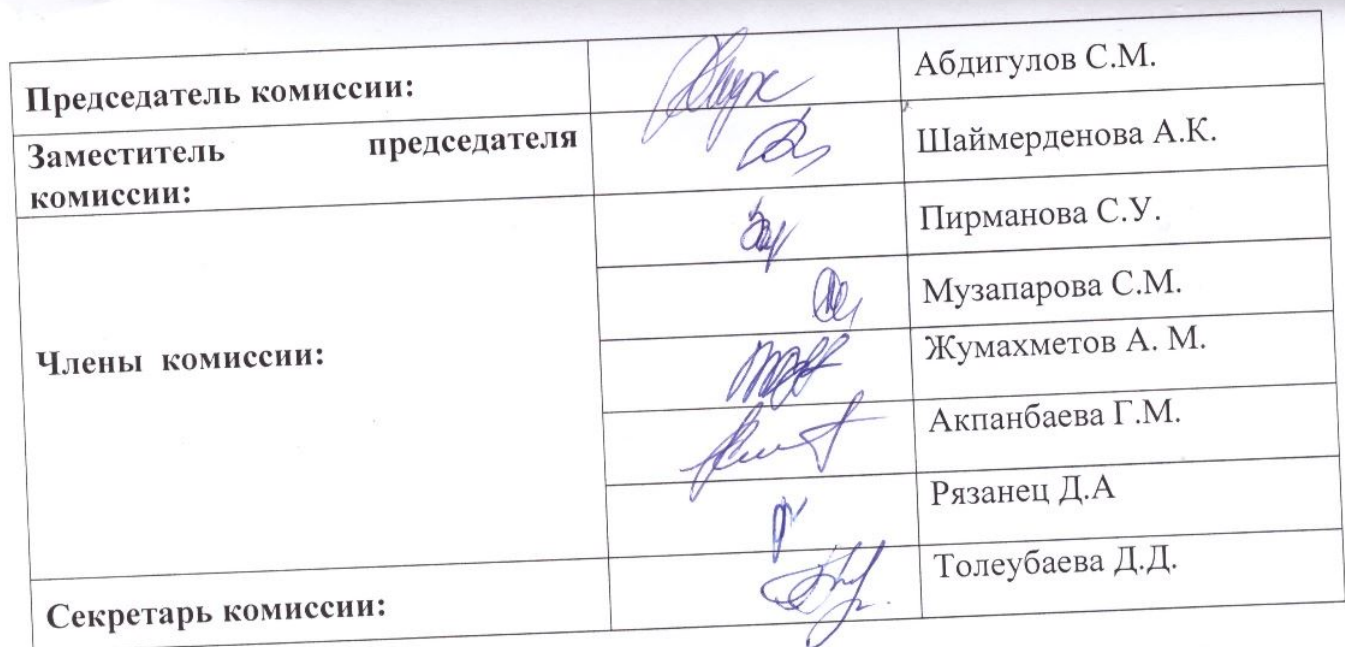 Председатель комиссии:
Абдигулов С.М.
Заместитель председателя
комиссии:
Шаймерденова А.К.
Члены комиссии:
Пирманова С.У.
Музапарова С.М.
Жумахметов А. М.
Акпанбаева Г.М.
Рязанец Д.А
Секретарь комиссии:
Толеубаева Д.Д.